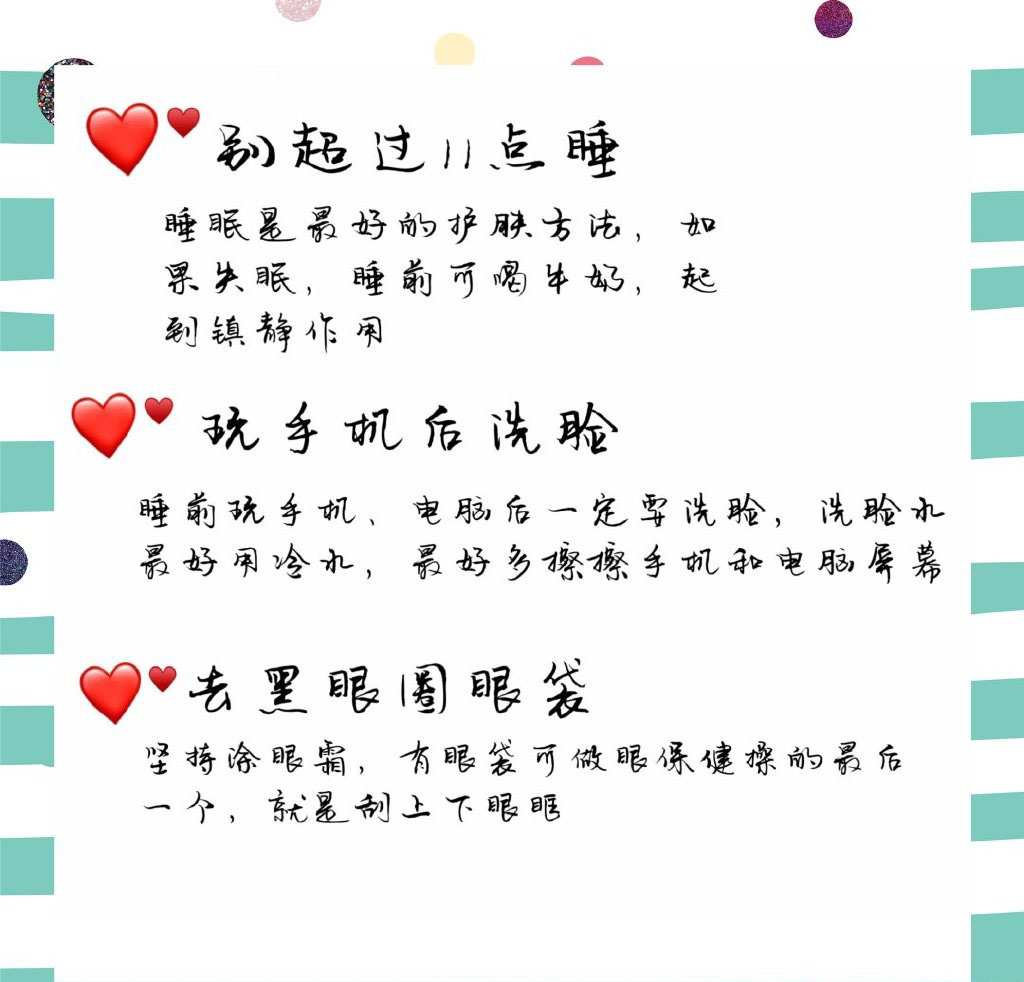 别超过11点睡
睡眠是最好的护肤方法，如
果失眠，睡前可喝牛奶，起
到镇静作用
玩手机后洗脸
睡前玩手机、电脑后一定要洗脸，洗脸水
最好用冷水，最好多擦擦手机和电脑屏幕
去黑眼圈眼袋
坚持涂眼霜，有眼袋可做眼保健操的最后
一个，就是刮上下眼眶